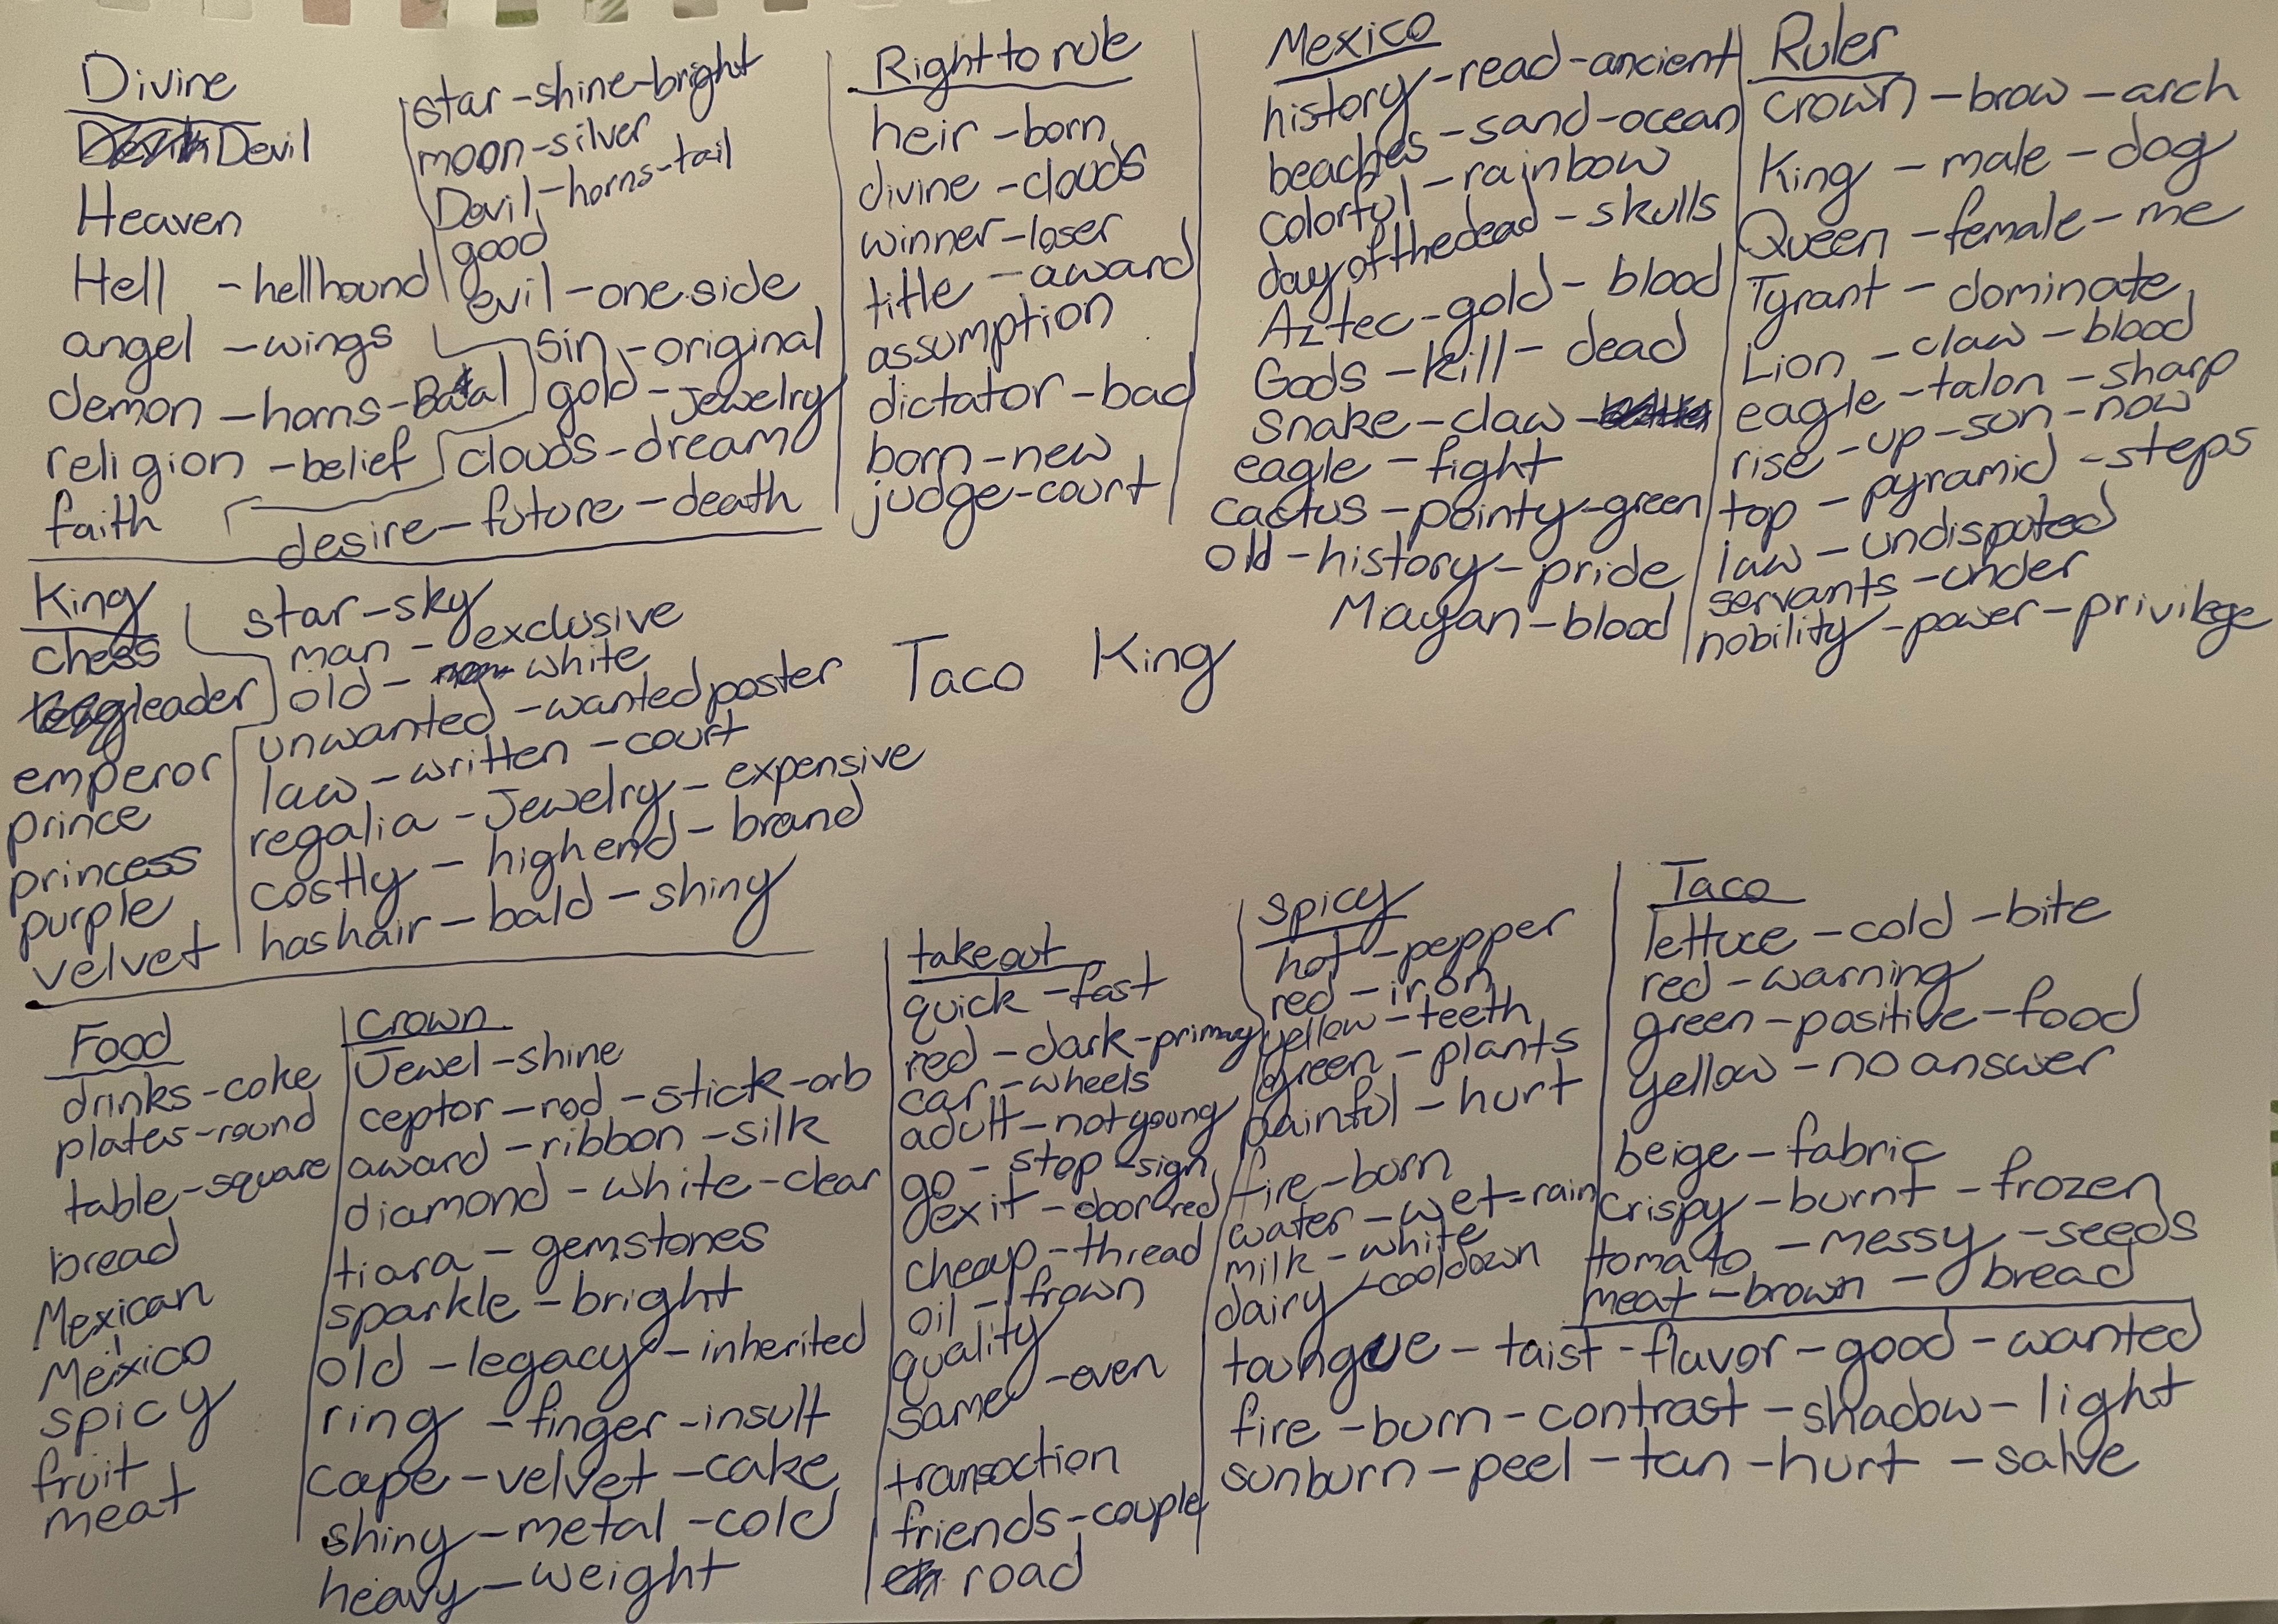 Divine
Devil
Heaven
Hell - hellhound
angel - wings
demon - horns - Baal
religion - belief
faith
star - shine - bright
moon - silver
Devil - horns - tail
good
evil - one side
sin - original
gold - Jewelry
clouds - dream
desire - future - death
Right to rule
heir - born
divine - clouds
winner - loser
title - award
assumption
dictator - bad
born - new
judge - court
Mexico
history - read - ancient
beaches - sand - ocean
colorful - rainbow
day of the dead - skulls
Aztec - gold - blood
Gods - kill - dead
snake - claw -
eagle - fight
cactus - pointy - green
old - history - pride
Mayan - blood
Ruler
crown - brow - arch
King - male - dog
Queen - female - me
Tyrant - dominate
Lion - claw - blood
eagle - talon - sharp
rise - up - son - now
top - pyramid - steps
law - undisputed
servants - under
nobility - power - privilege
King
chess
leader
emperor
prince
princess
purple
velvet
star - sky
man - exclusive
old - white
unwanted - wanted poster
law - written - court
regalia - Jewelry - expensive
costly - high end - brand
has hair - bald - shiny
Taco King
Food
drinks - coke
plates - round
table - square
bread
Mexican
Mexico
spicy
fruit
meat
Crown
Jewel - shine
ceptor - rod - stick - orb
award - ribbon - silk
diamond - white - clear
tiara - gemstones
sparkle - bright
old - legacy - inherited
ring - finger - insult
cape - velvet - cake
shiny - metal - cold
heavy - weight
takeout
quick - fast
red - dark - primary
car - wheels
adult - not young
go - stop - sign
exit - door red
cheap - thread
oil - frown
quality
same - even
transaction
friends - couple
road
spicy
hot - pepper
red - iron
yellow - teeth
green - plants
painful - hurt
fire - born
water - wet - rain
milk - white
dairy - cooldown
toungue - taist - flavor - good - wanted
fire - burn - contrast - shadow - light
sunburn - peel - tan - hurt - salve
Taco
lettuce - cold - bite
red - warning
green - positive - food
yellow - no answer
beige - fabric
crispy - burnt - frozen
tomato - messy - seeds
meat - brown - bread